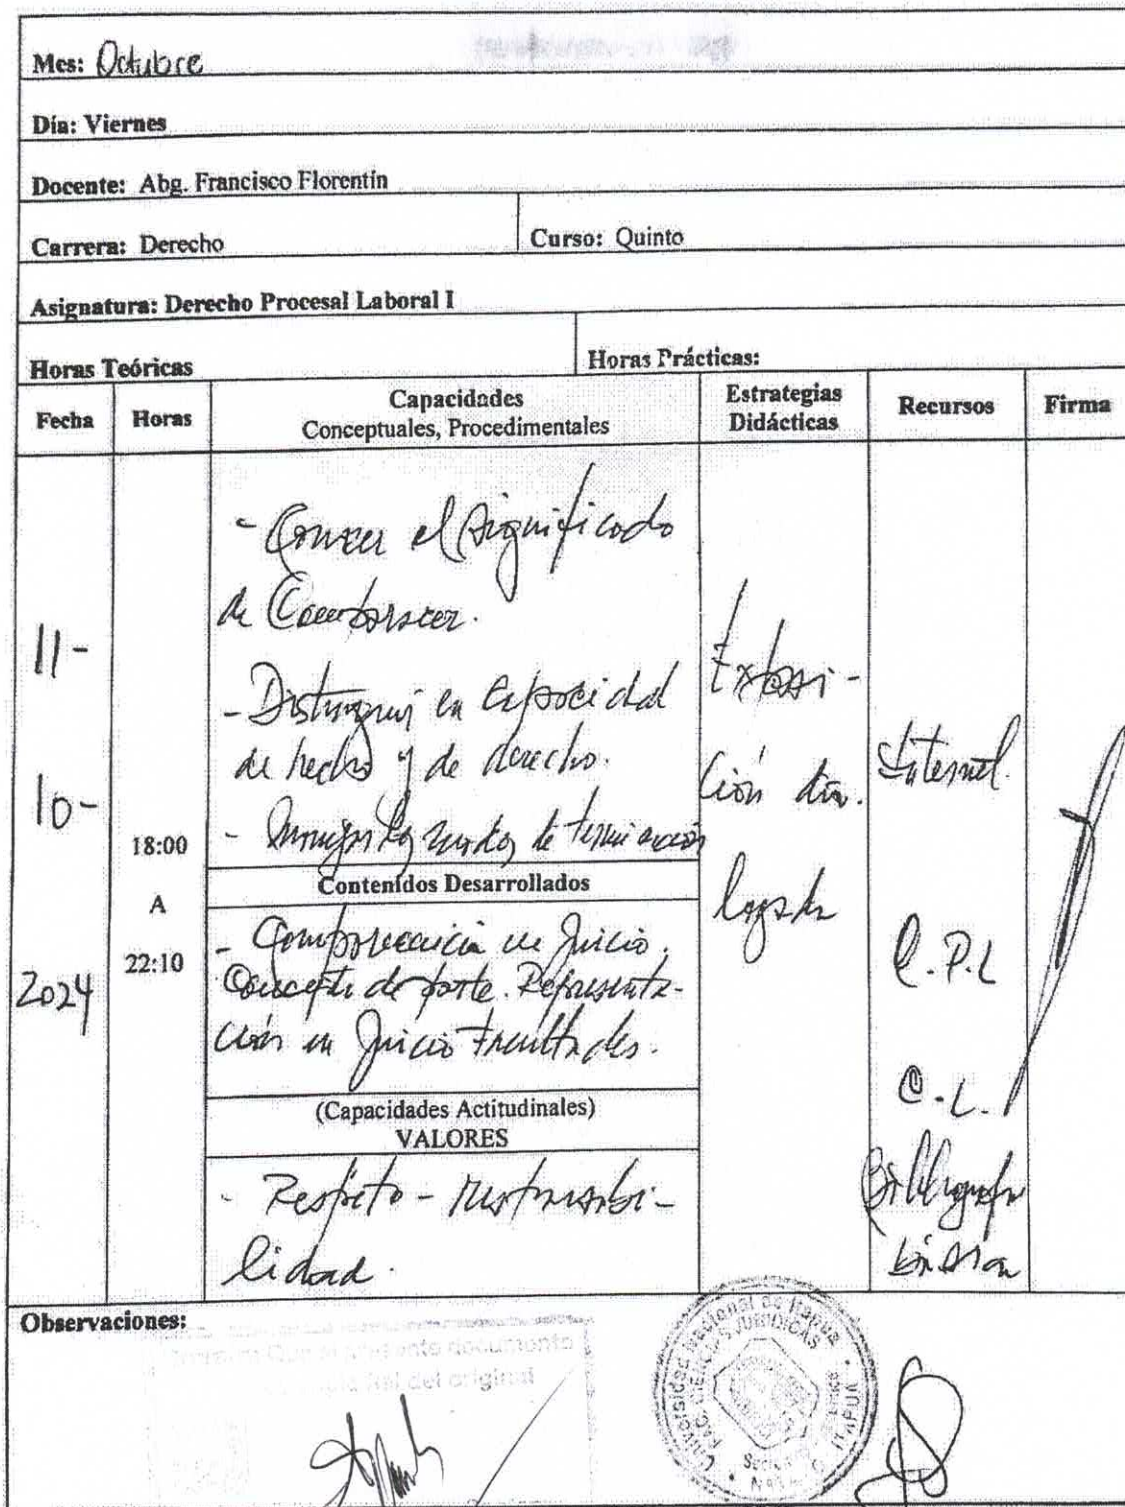 Mes: Octubre
Día: Viernes
Docente: Abg. Francisco Florentín
Carrera: Derecho
Curso: Quinto
Asignatura: Derecho Procesal Laboral I
Horas Teóricas
Horas Prácticas:
Fecha
Horas
Capacidades
Conceptuales, Procedimentales
Estrategias
Didácticas
Recursos
Firma
11-
10-
2024
18:00
A
22:10
- Conocer el significado
de Comparecer.
- Distinguir en capacidad
de hecho y de derecho.
- los modos de terminación
Contenidos Desarrollados
- Comparecencia en Juicio.
Concepto de parte. Representa-
ción en Juicio Facultades.
(Capacidades Actitudinales)
VALORES
- Respeto - responsabi-
lidad.
Exposi-
ción dia.
logada
Internet.
C.P.L
C.L.
Bibliografía
básica
Observaciones:
Que el presente documento
es copia fiel del original
Universidad Nacional de Itapúa
FAC. CIENCIAS JURIDICAS
ITAPUA